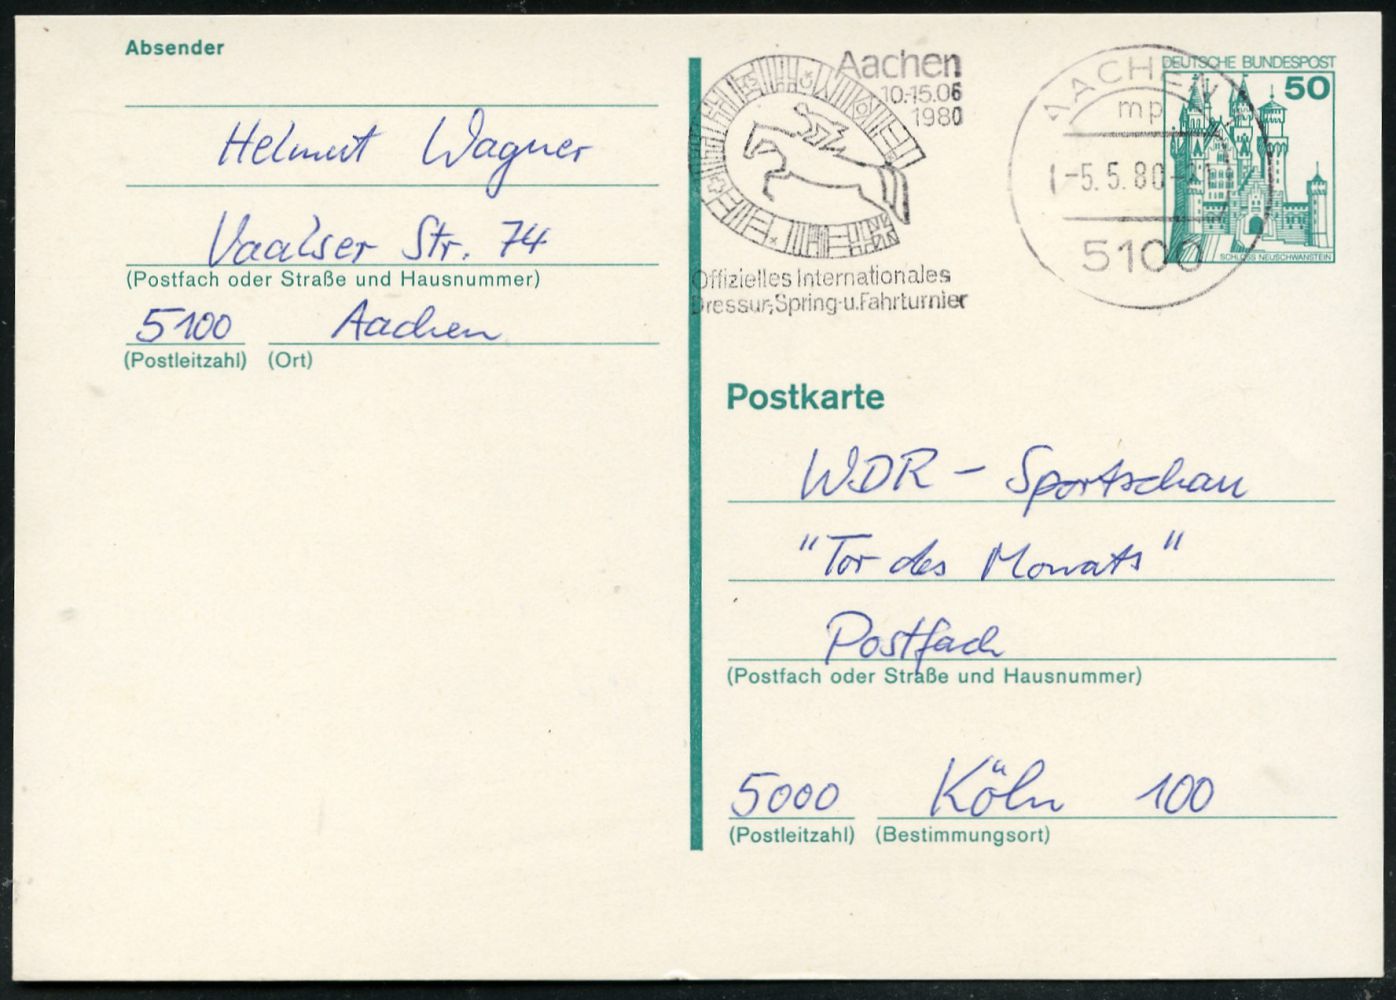 Absender
Helmut Wagner
Vaalser Str. 74
(Postfach oder Straße und Hausnummer)
5100 Aachen
(Postleitzahl) (Ort)
Aachen
10.-15.06
1980
Offizielles Internationales
Dressur-,Spring-u.Fahrturnier
AACHEN
mp
-5.5.80
5100
DEUTSCHE BUNDESPOST
50
SCHLOSS NEUSCHWANSTEIN
Postkarte
WDR - Sportschau
"Tor des Monats"
Postfach
(Postfach oder Straße und Hausnummer)
5000 Köln 100
(Postleitzahl) (Bestimmungsort)